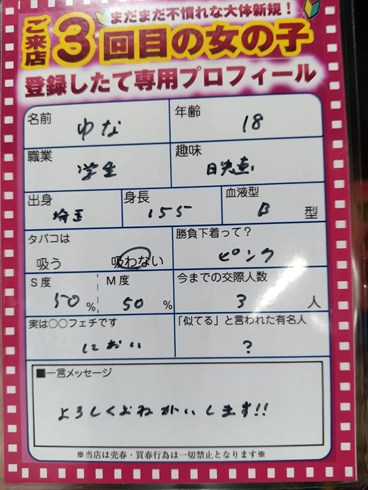 まだまだ不慣れな大体新規！
ご来店3回目の女の子
登録したて専用プロフィール
名前 ゆな 年齢 18
職業 学生 趣味
出身 埼玉 身長 155 血液型 B 型
タバコは 吸う 吸わない 勝負下着って？ ピンク
S度 50% M度 50% 今までの交際人数 3人
実は○○フェチです におい 「似てる」と言われた有名人 ？
■一言メッセージ
よろしくおねがいします!!
※当店は売春・買春行為は一切禁止となります※